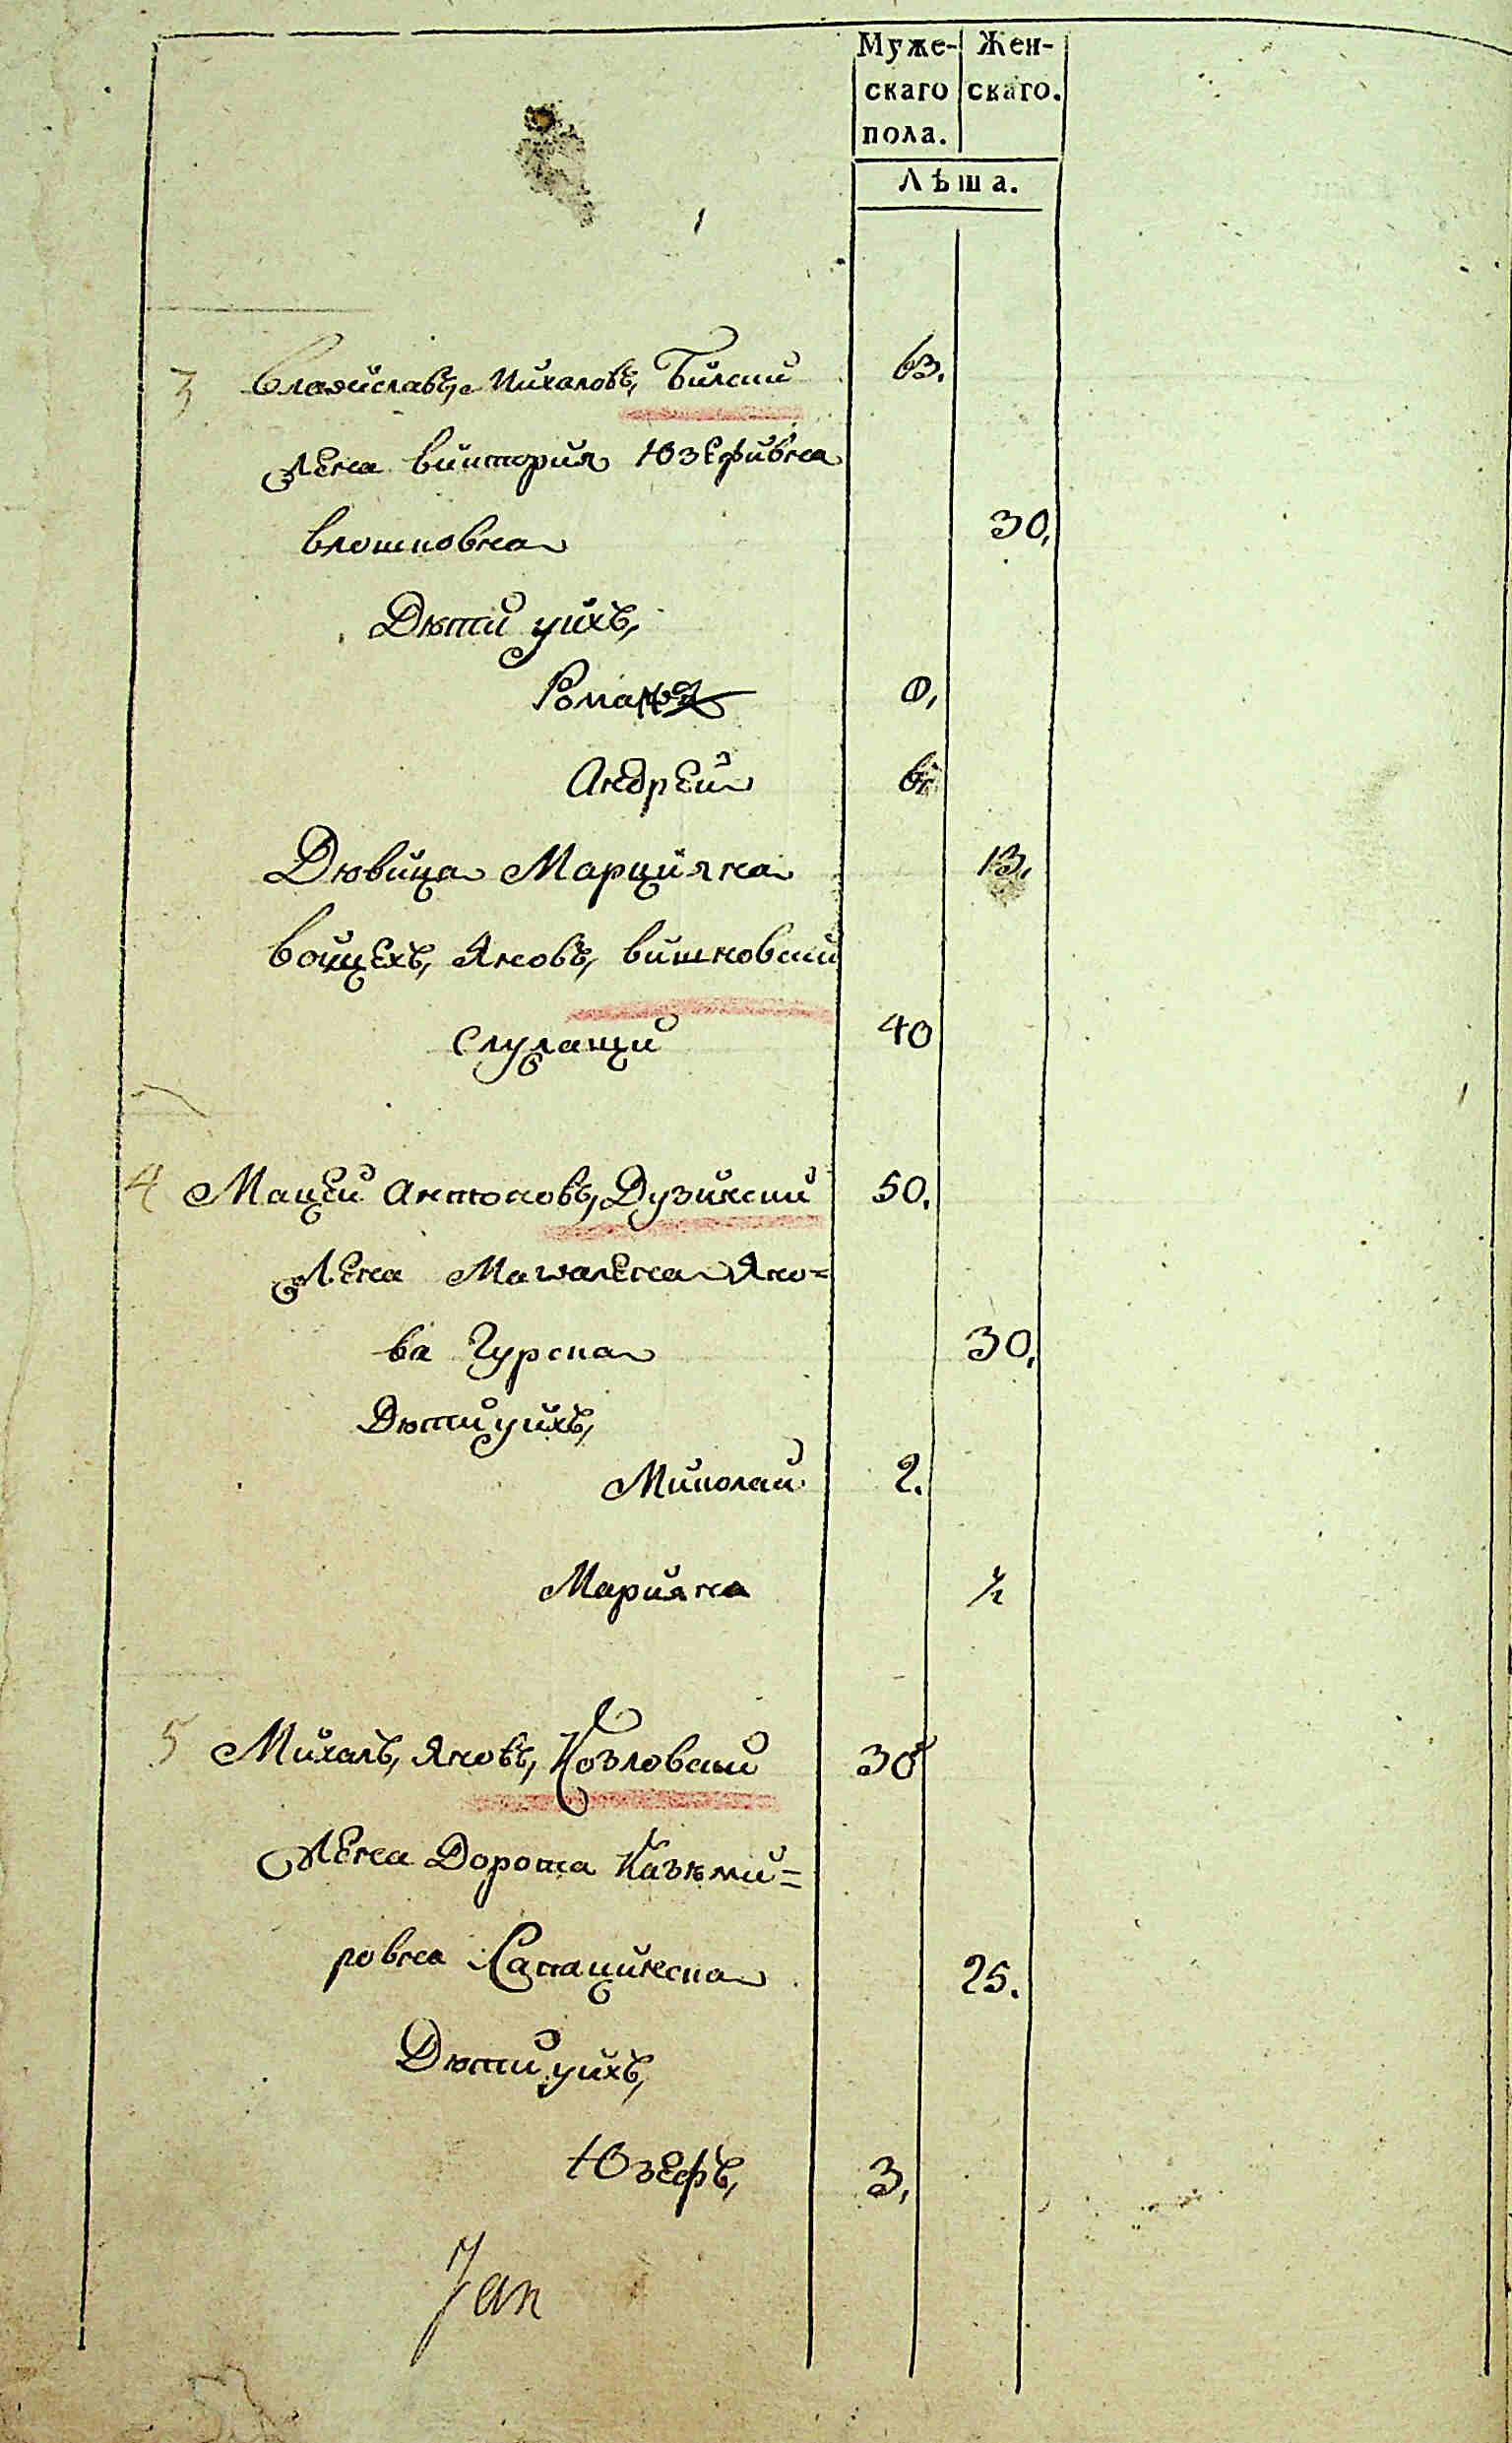 Муже- Жен-
скаго скаго.
пола.
Лѣта.
3 Владиславъ Михаловъ Билски 63.
Жена виктория Юзефивна
влошковна 30,
Дѣти уихъ,
Романъ 0,
Андрей 6
Дѣвица Марцияна 13,
войцехъ, Яновъ, вишновски
Служащи 40
4 Мацей Антоновъ, Дузински 50.
Жена Магдалена Яно=
ва Гурска 30,
Дѣти уихъ,
Миколай 2.
Марияна ½
5 Михалъ, Яновъ, Козловский 30
Жена Дорота Казѣми=
ровна 25.
Дѣти уихъ,
Юзефъ, 3,
Jan